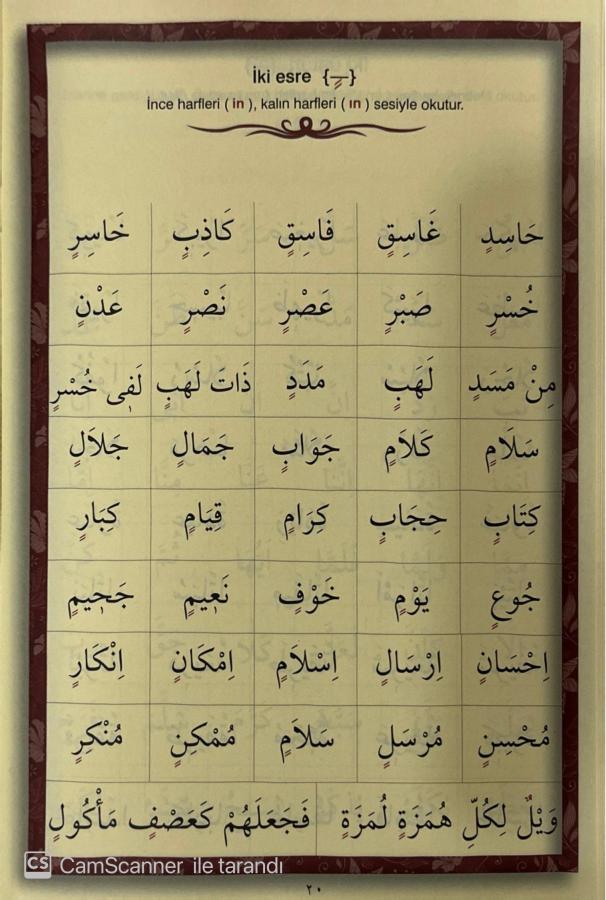 İki esre {ـٍ}
İnce harfleri ( in ), kalın harfleri ( ın ) sesiyle okutur.
حَاسِدٍ غَاسِقٍ فَاسِقٍ كَاذِبٍ خَاسِرٍ
خُسْرٍ صَبْرٍ عَصْرٍ نَصْرٍ عَدْنٍ
مِنْ مَسَدٍ لَهَبٍ مَدَدٍ ذَاتَ لَهَبٍ لَفٖى خُسْرٍ
سَلَامٍ كَلَامٍ جَوَابٍ جَمَالٍ جَلَالٍ
كِتَابٍ حِجَابٍ كِرَامٍ قِيَامٍ كِبَارٍ
جُوعٍ يَوْمٍ خَوْفٍ نَعٖيمٍ جَحٖيمٍ
اِحْسَانٍ اِرْسَالٍ اِسْلَامٍ اِمْكَانٍ اِنْكَارٍ
مُحْسِنٍ مُرْسَلٍ سَلَامٍ مُمْكِنٍ مُنْكِرٍ
وَيْلٌ لِكُلِّ هُمَزَةٍ لُمَزَةٍ فَجَعَلَهُمْ كَعَصْفٍ مَأْكُولٍ
CS CamScanner ile tarandı
٢٠